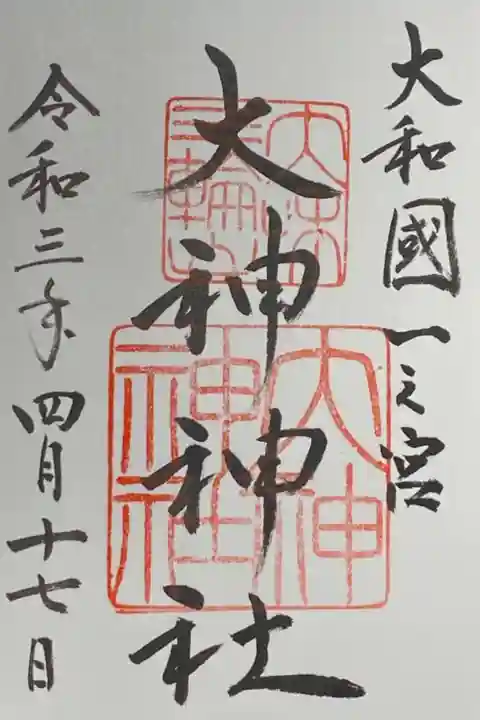 大和國一之宮
大神神社
令和三年四月十七日
大神神社